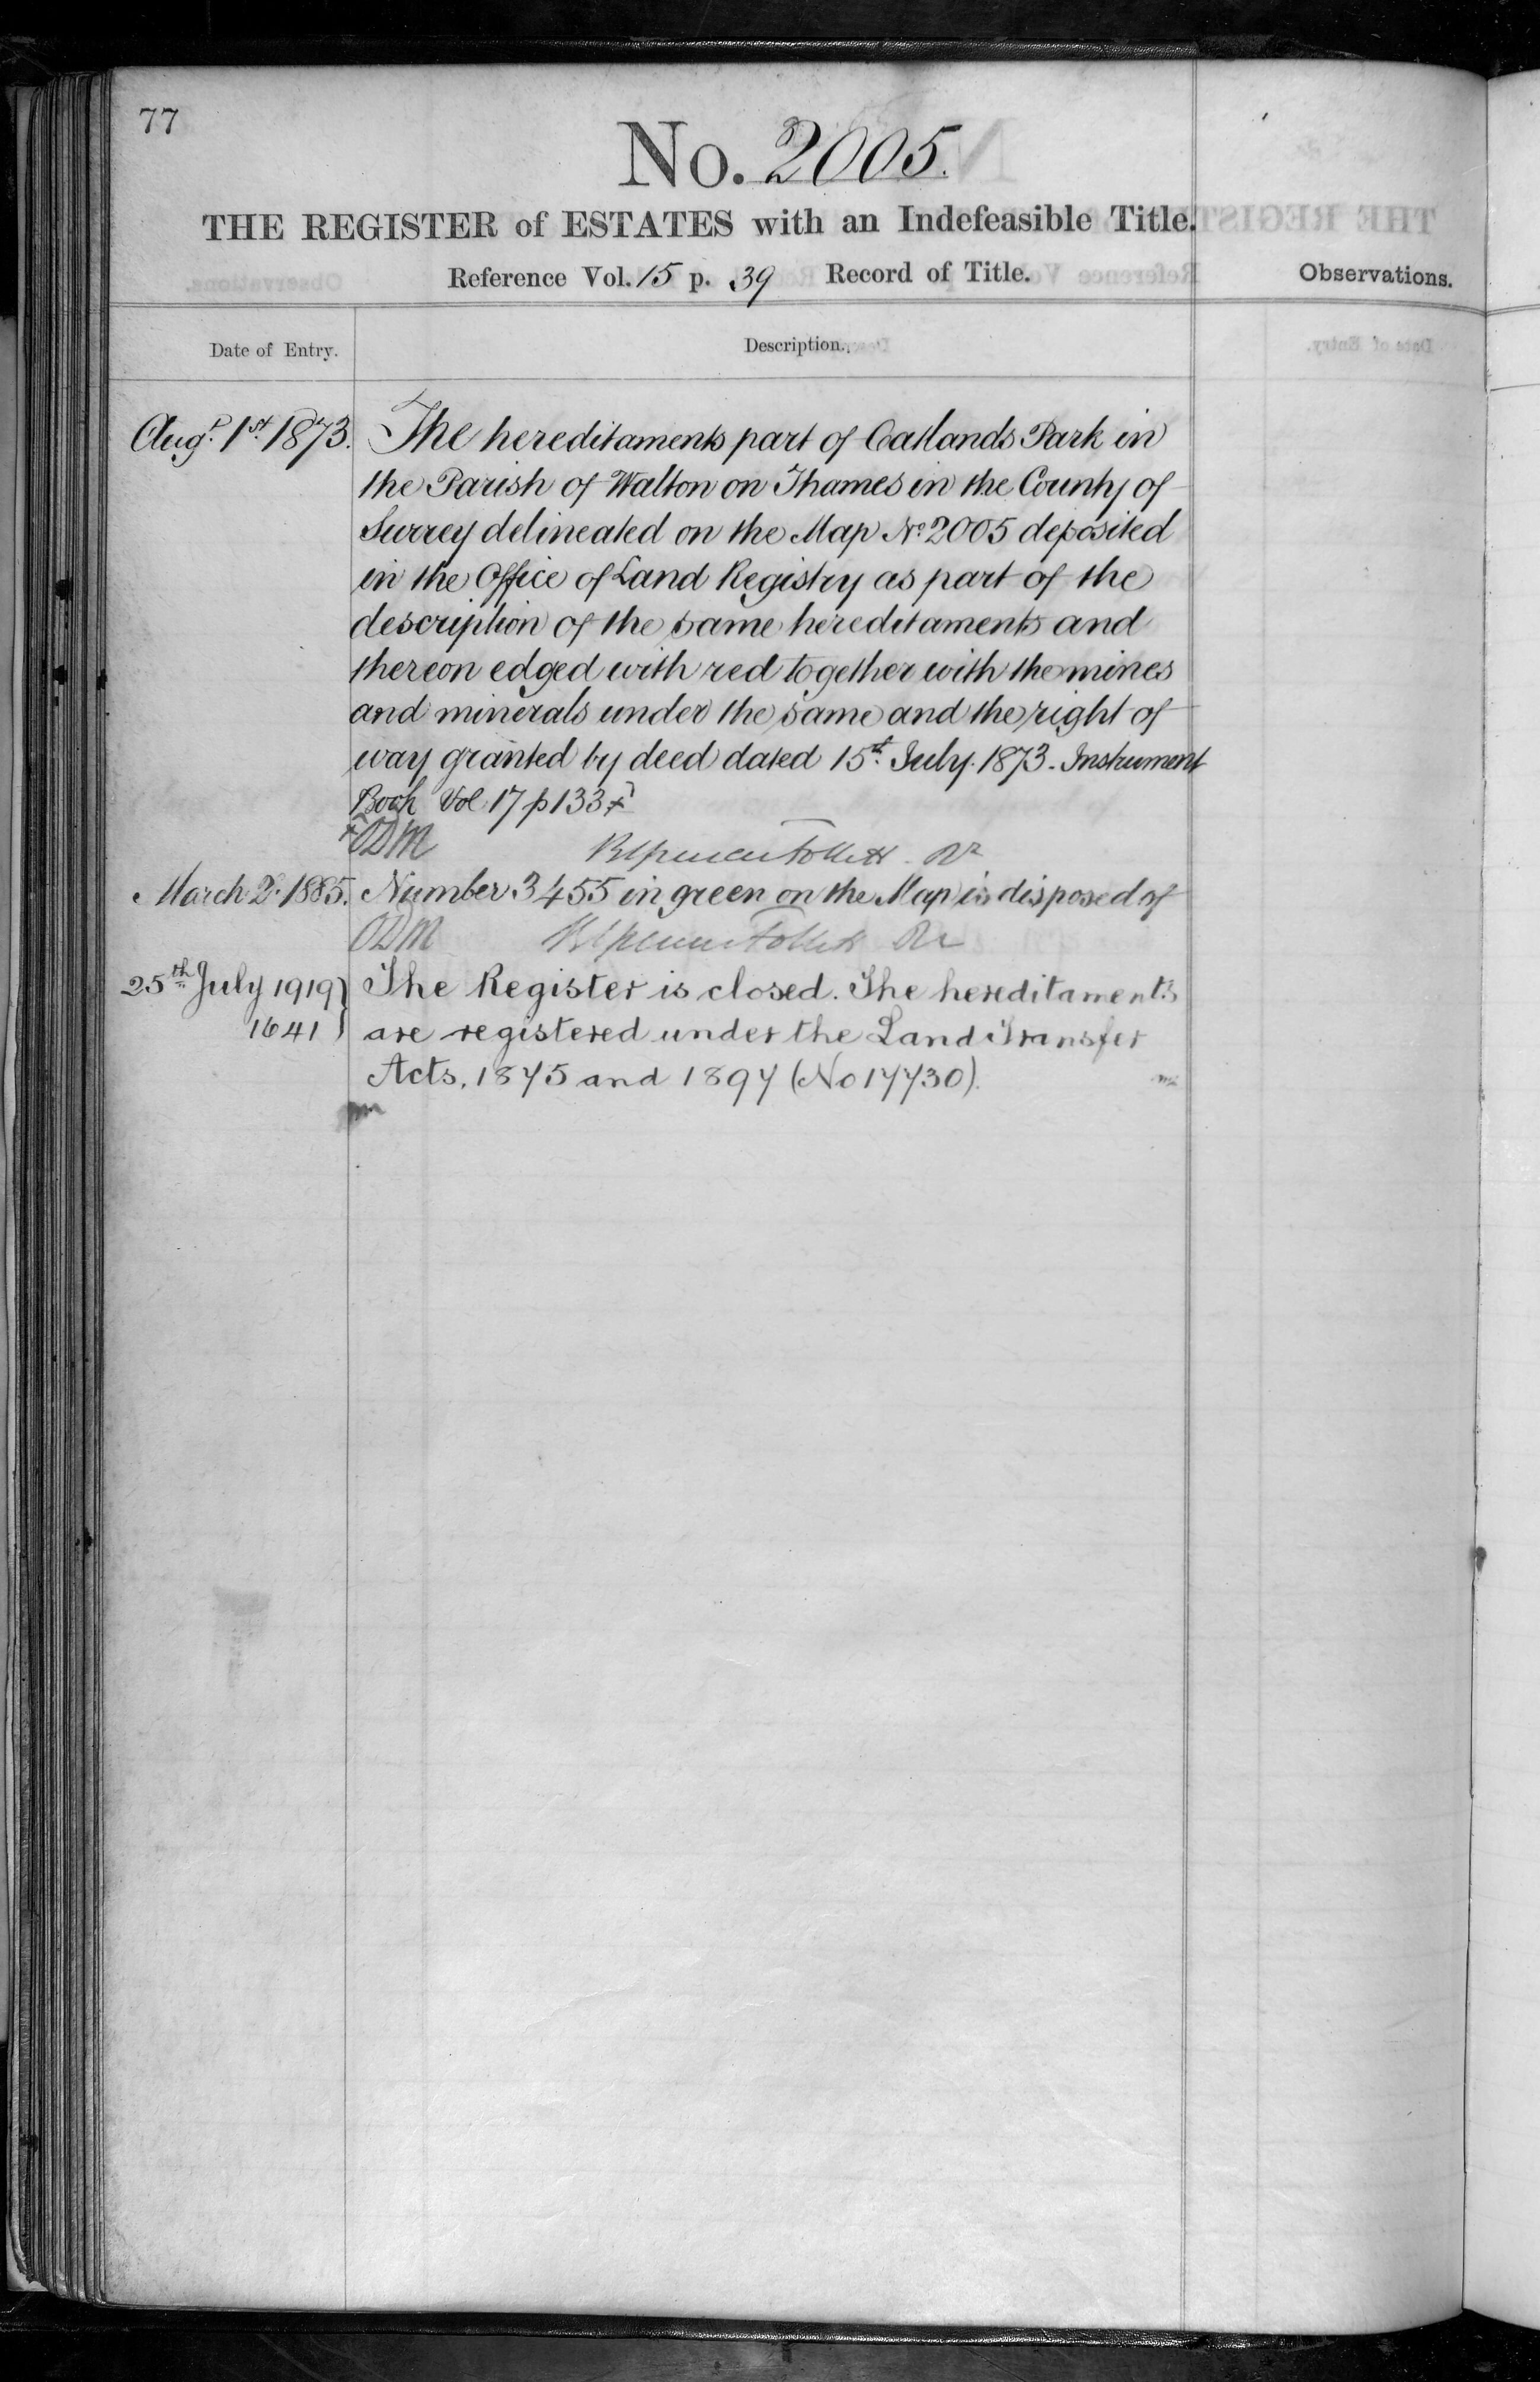 77
No. 2005.
THE REGISTER of ESTATES with an Indefeasible Title.
Reference Vol. 15 p. 39 Record of Title.
Observations.
Date of Entry.
Description.
Augt. 1st. 1873. The hereditaments part of Oatlands Park in
the Parish of Walton on Thames in the County of
Surrey delineated on the Map No. 2005 deposited
in the Office of Land Registry as part of the
description of the same hereditaments and
thereon edged with red together with the mines
and minerals under the same and the right of
way granted by deed dated 15th. July. 1873. Instrument
Book Vol. 17 p 133
ODM
March 2. 1885. Number 3455 in green on the Map is disposed of
ODM
25th July 1919 The Register is closed. The hereditaments
1641 are registered under the Land Transfer
Acts, 1875 and 1897 (No 17730).